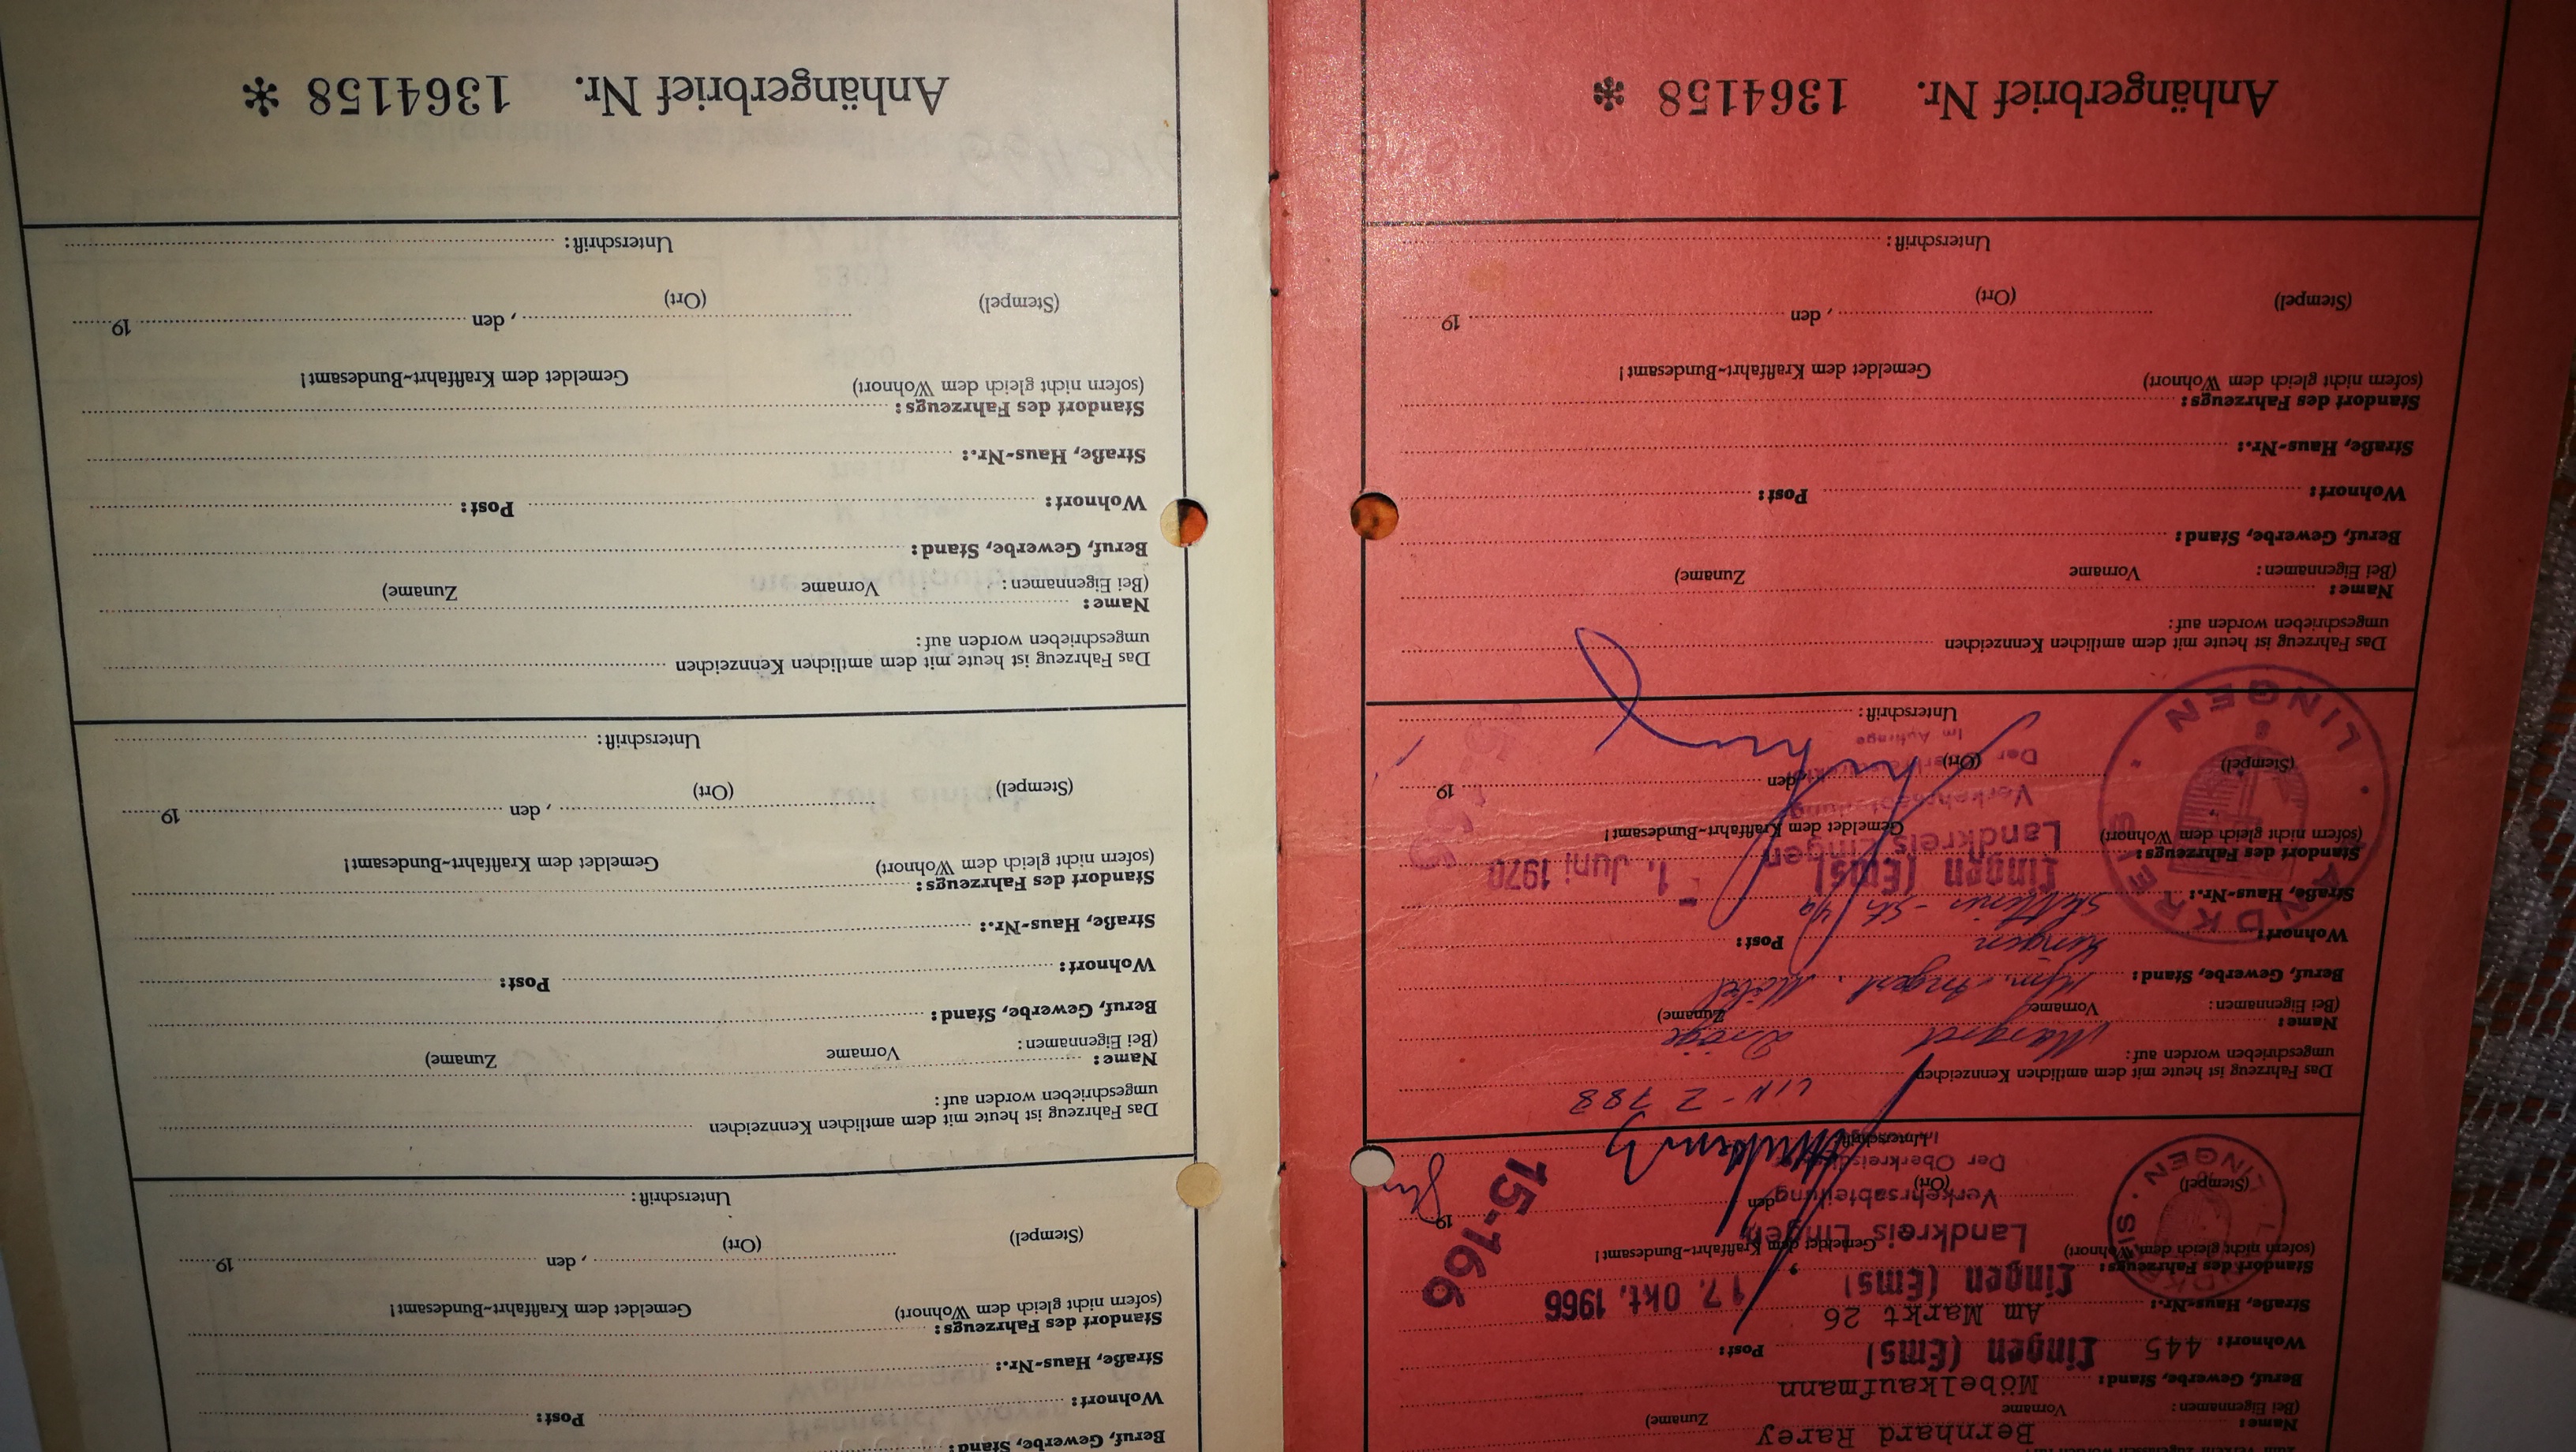 Name:
Bernhard Rarey
(Bei Eigennamen: Vorname Zuname)
Beruf, Gewerbe, Stand: Möbelkaufmann
Wohnort: 445 Lingen (Ems) Post:
Straße, Haus-Nr.: Am Markt 26
Standort des Fahrzeugs:
(sofern nicht gleich dem Wohnort)
Lingen (Ems) 17. Okt. 1966
Gemeldet dem Kraftfahrt-Bundesamt!
Landkreis Lingen
Verkehrsabteilung
(Stempel) (Ort) den 19
Der Oberkreisdirektor
Unterschrift:
15-166
Das Fahrzeug ist heute mit dem amtlichen Kennzeichen LIN-Z 788
umgeschrieben worden auf:
Name: Margret Dröge
(Bei Eigennamen: Vorname Zuname)
Beruf, Gewerbe, Stand: Möbel
Wohnort: Lingen Post:
Straße, Haus-Nr.:
Standort des Fahrzeugs:
(sofern nicht gleich dem Wohnort)
Lingen (Ems) - 1. Juni 1970
Gemeldet dem Kraftfahrt-Bundesamt!
Landkreis Lingen
Verkehrsabteilung
(Stempel) (Ort) den 19
Der Oberkreisdirektor
Im Auftrage
Unterschrift:
LANDKREIS LINGEN
8
Das Fahrzeug ist heute mit dem amtlichen Kennzeichen
umgeschrieben worden auf:
Name:
(Bei Eigennamen: Vorname Zuname)
Beruf, Gewerbe, Stand:
Wohnort: Post:
Straße, Haus-Nr.:
Standort des Fahrzeugs:
(sofern nicht gleich dem Wohnort)
Gemeldet dem Kraftfahrt-Bundesamt!
, den 19
(Stempel) (Ort)
Unterschrift:
Anhängerbrief Nr. 1364158 *
Beruf, Gewerbe, Stand:
Wohnort: Post:
Straße, Haus-Nr.:
Standort des Fahrzeugs:
(sofern nicht gleich dem Wohnort)
Gemeldet dem Kraftfahrt-Bundesamt!
, den 19
(Stempel) (Ort)
Unterschrift:
Das Fahrzeug ist heute mit dem amtlichen Kennzeichen
umgeschrieben worden auf:
Name:
(Bei Eigennamen: Vorname Zuname)
Beruf, Gewerbe, Stand:
Wohnort: Post:
Straße, Haus-Nr.:
Standort des Fahrzeugs:
(sofern nicht gleich dem Wohnort)
Gemeldet dem Kraftfahrt-Bundesamt!
, den 19
(Stempel) (Ort)
Unterschrift:
Das Fahrzeug ist heute mit dem amtlichen Kennzeichen
umgeschrieben worden auf:
Name:
(Bei Eigennamen: Vorname Zuname)
Beruf, Gewerbe, Stand:
Wohnort: Post:
Straße, Haus-Nr.:
Standort des Fahrzeugs:
(sofern nicht gleich dem Wohnort)
Gemeldet dem Kraftfahrt-Bundesamt!
, den 19
(Stempel) (Ort)
Unterschrift:
Anhängerbrief Nr. 1364158 *